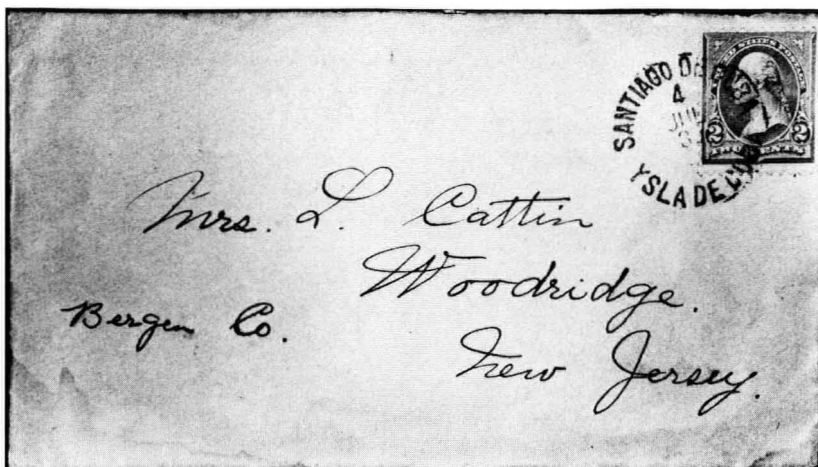 SANTIAGO DE
4
YSLA DE
2 2
Mrs. L. Cattin
Woodridge.
Bergen Co.
New Jersey.